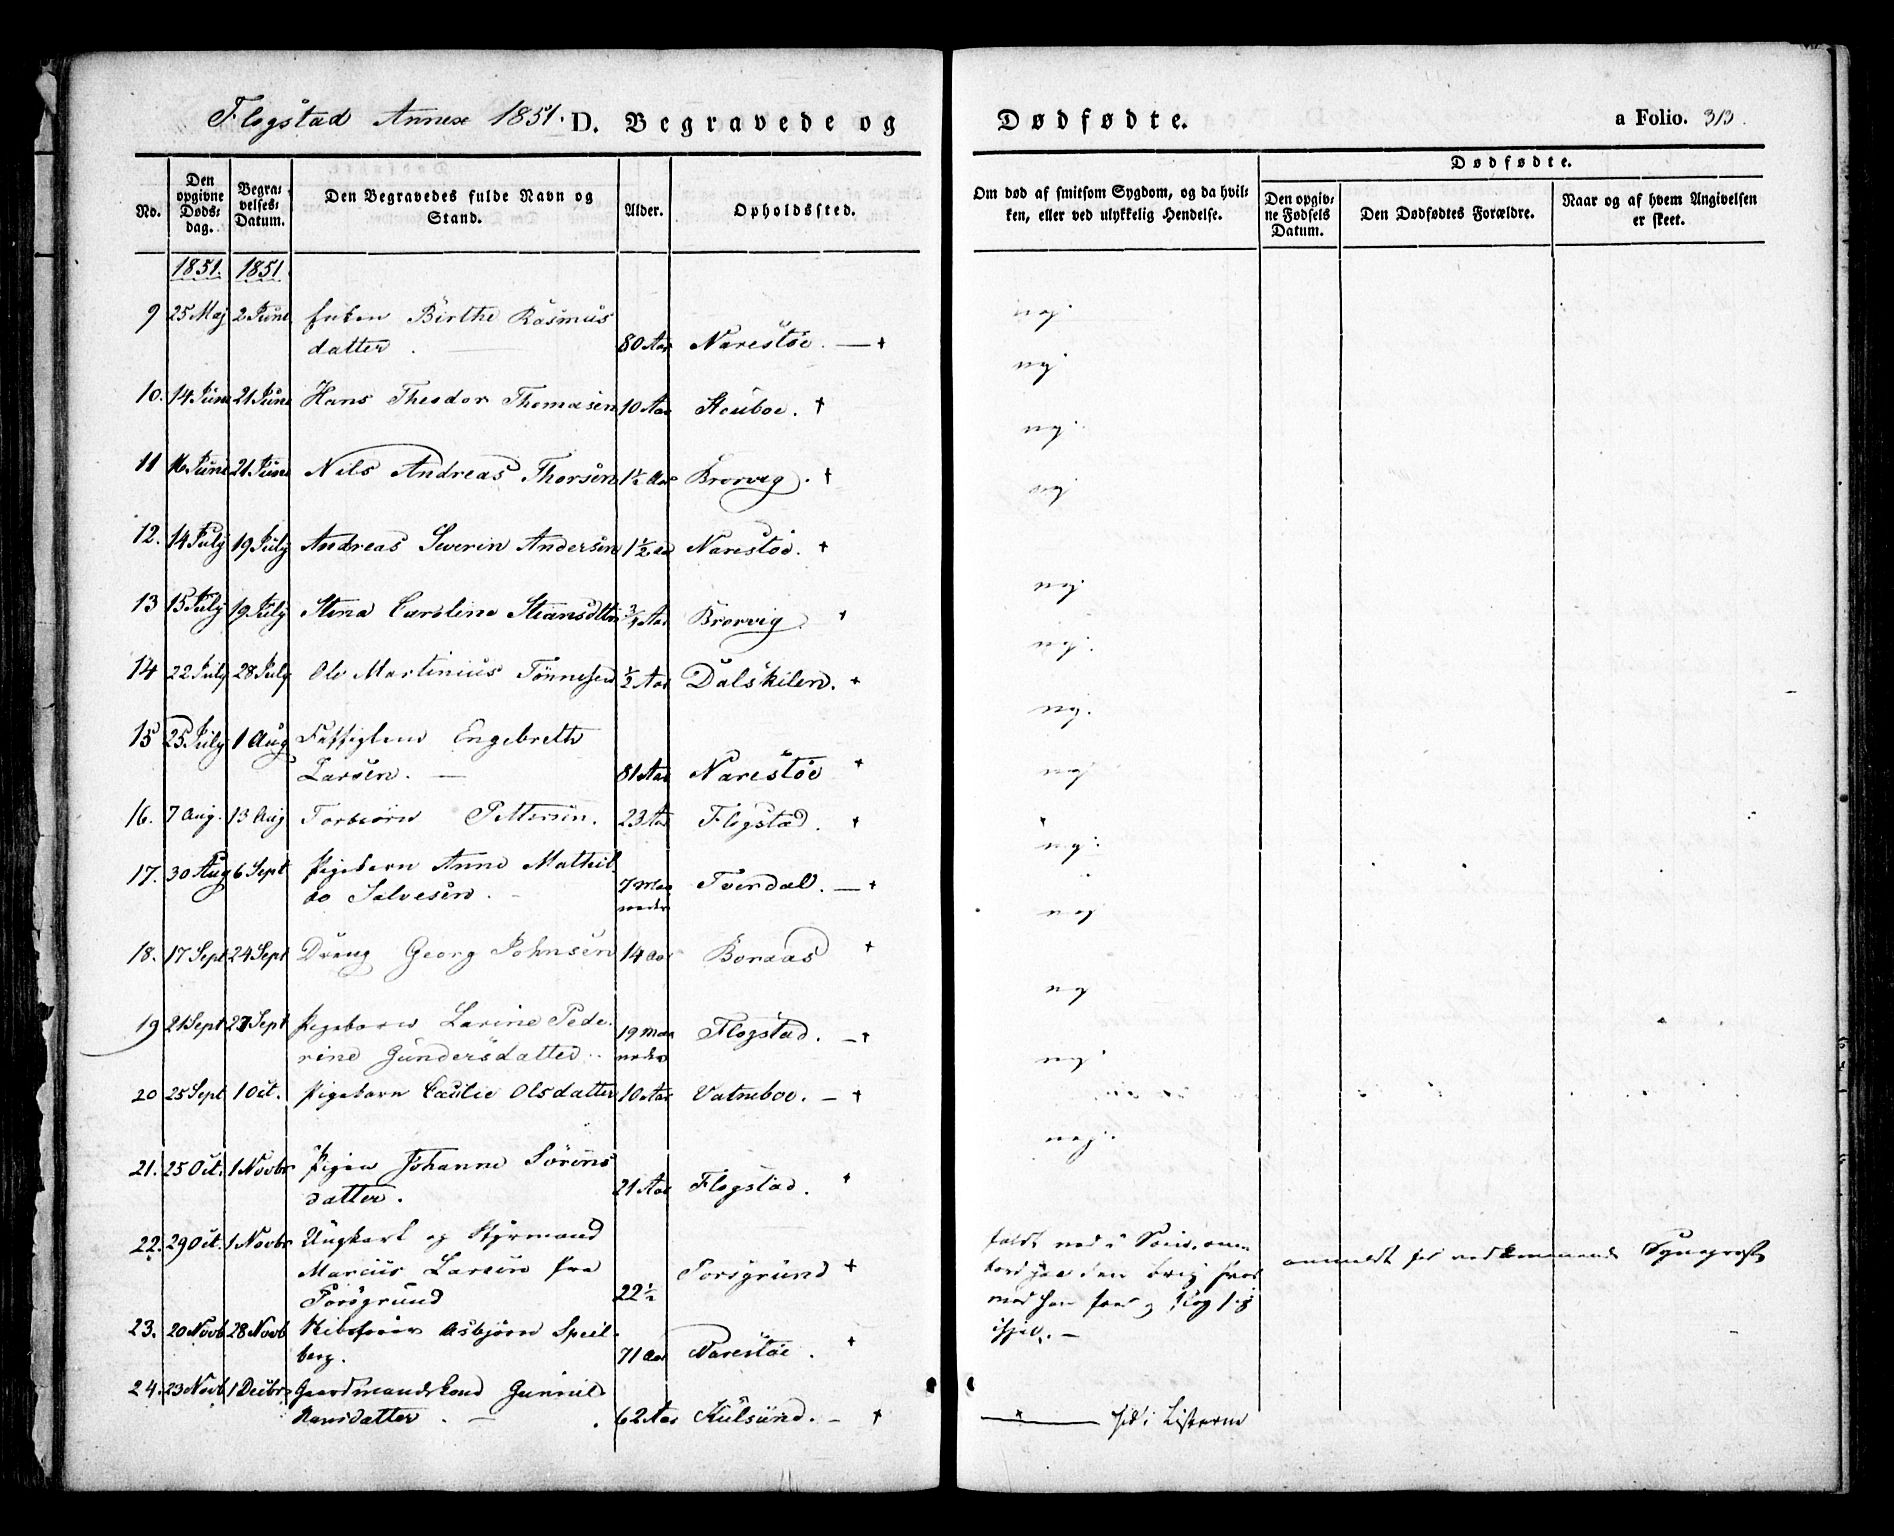 Flogstad Annex 1851. D. Begravede og Dødfødte. a Folio. 313.
No.
Den opgivne Døds-dag.
Begra-velses-Datum.
Den Begravedes fulde Navn og Stand.
Alder.
Opholdssted.
Om død af smitsom Sygdom, og da hvil-ken, eller ved ulykkelig Hendelse.
Dødfødte.
Den opgiv-ne Fødsels Datum.
Den Dødfødtes Forældre.
Naar og af hvem Angivelsen er skeet.
1851. 1851
9 25 Maj 2 Juni Enken Birthe Rasmus
datter. 80 Aar Narestøe. — + nej.
10. 14 Juni 21 Juni Hans Theodor Thomasen 10 Aar Stuboe. + nej.
11 16 Juni 21 Juni Nils Andreas Thorsen 1½ Aar Brorvig. + nej.
12. 14 July 19 July Andreas Severin Andersen 1½ Aar Narestøe. + nej
13 15 July 19 July Stena Caroline Steansdttr ¾ Aar Brorvig. + nej.
14 22 July 28 July Ole Martinius Tønnesen ½ Aar Dalskilen. + nej.
15 25 July 1 Aug Fattiglem Engebreth
Larsen. — 81 Aar Narestøe + nej.
16. 7 Aug. 13 Aug Torbiørn Pettersen. 23 Aar Flogstad. + nej
17. 30 Aug 6 Sept Pigebarn Anne Mathil-
de Salvesen. 7 Maa
neder Tverdal. — + nej.
18. 17 Sept 24 Sept Dreng Georg Johnsen 14 Aar Boraas + nej
19 21 Sept 27 Sept Pigebarn Larine Pede-
rine Gundersdatter. 19 Maa
neder Flogstad. — + nej
20 25 Sept 1 Oct. Pigebarn Caulie Olsdatter 10 Aar Vatneboe. — + nej.
21. 25 Oct. 1 Novbr Pigen Johanne Sørens
datter. 21 Aar Flogstad. + nej.
22. 29 Oct. 1 Novbr Ungkarl og Styrmand
Marcus Larsen fra
Porsgrund 22½ Porsgrund + faldt ned i
med han og slog sig
ihjel. —
anmeldt for vedkommende
23. 20 Novb 28 Novb Asbjørn Speil-
berg. 71 Aar Narestøe. +
24. 23 Novb 1 Decbr Gaardmandskond Gunnil
Hansdatter. — 62 Aar Kulsund. — + + sid i Listerne